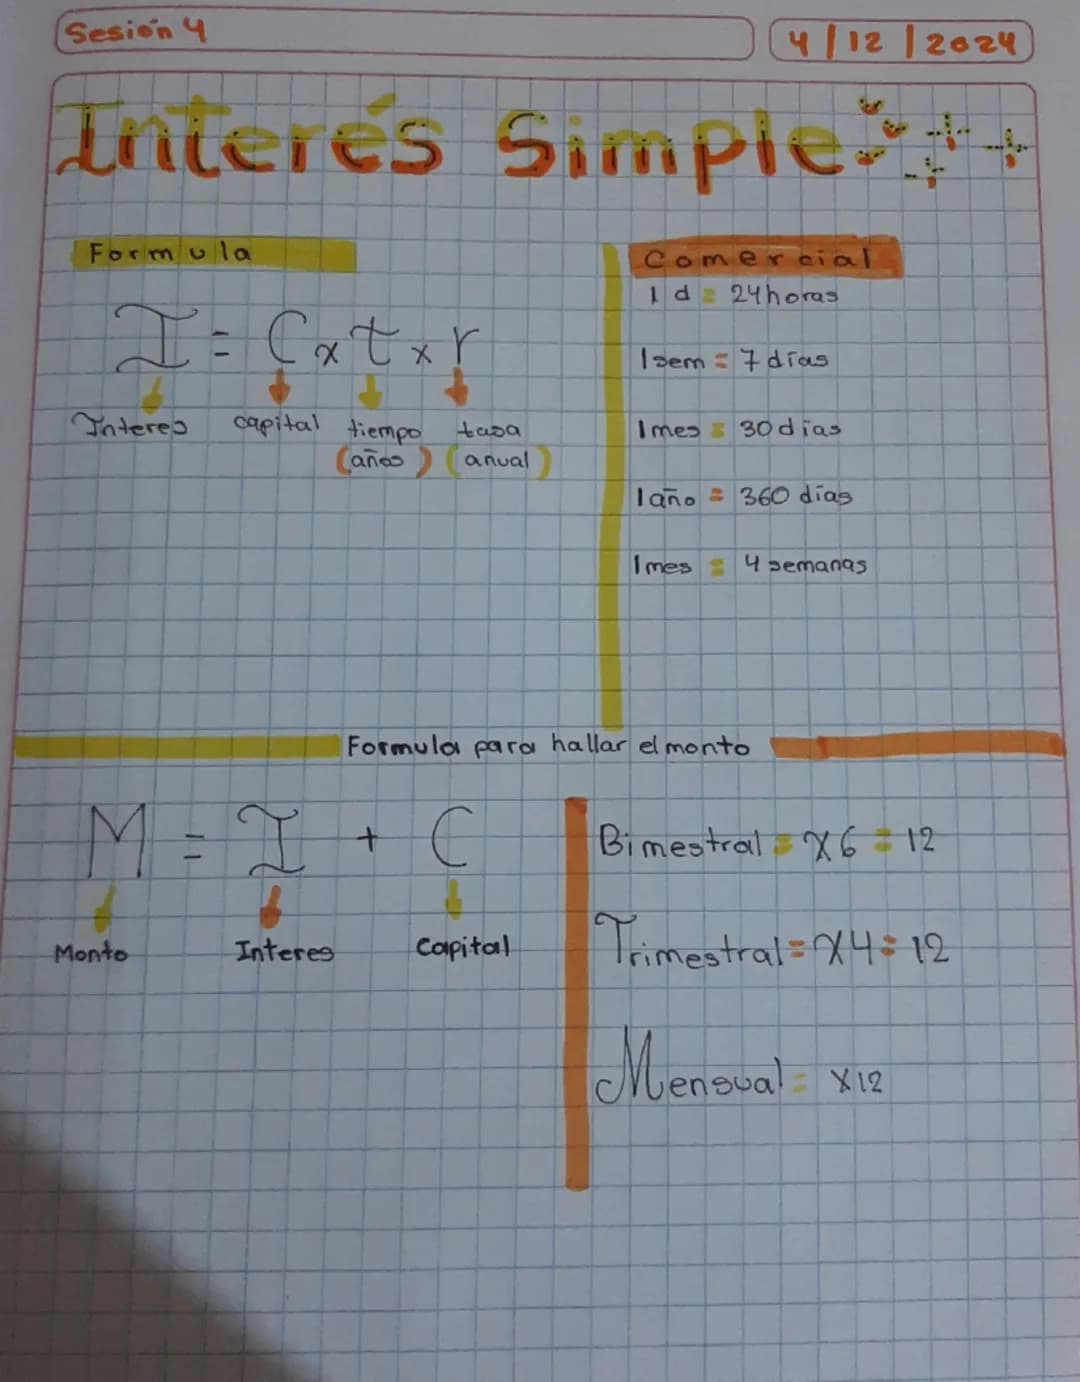 Sesión 4
4/12/2024
Interés Simple
Formula
I = C x t x r
Interes capital tiempo tasa
(años) (anual)
Comercial
1 d = 24 horas
1 sem = 7 días
1 mes = 30 dias
1 año = 360 días
1 mes = 4 semanas
Formula para hallar el monto
M = I + C
Monto Interes Capital
Bimestral = x6 = 12
Trimestral = x4 = 12
Mensual = x12